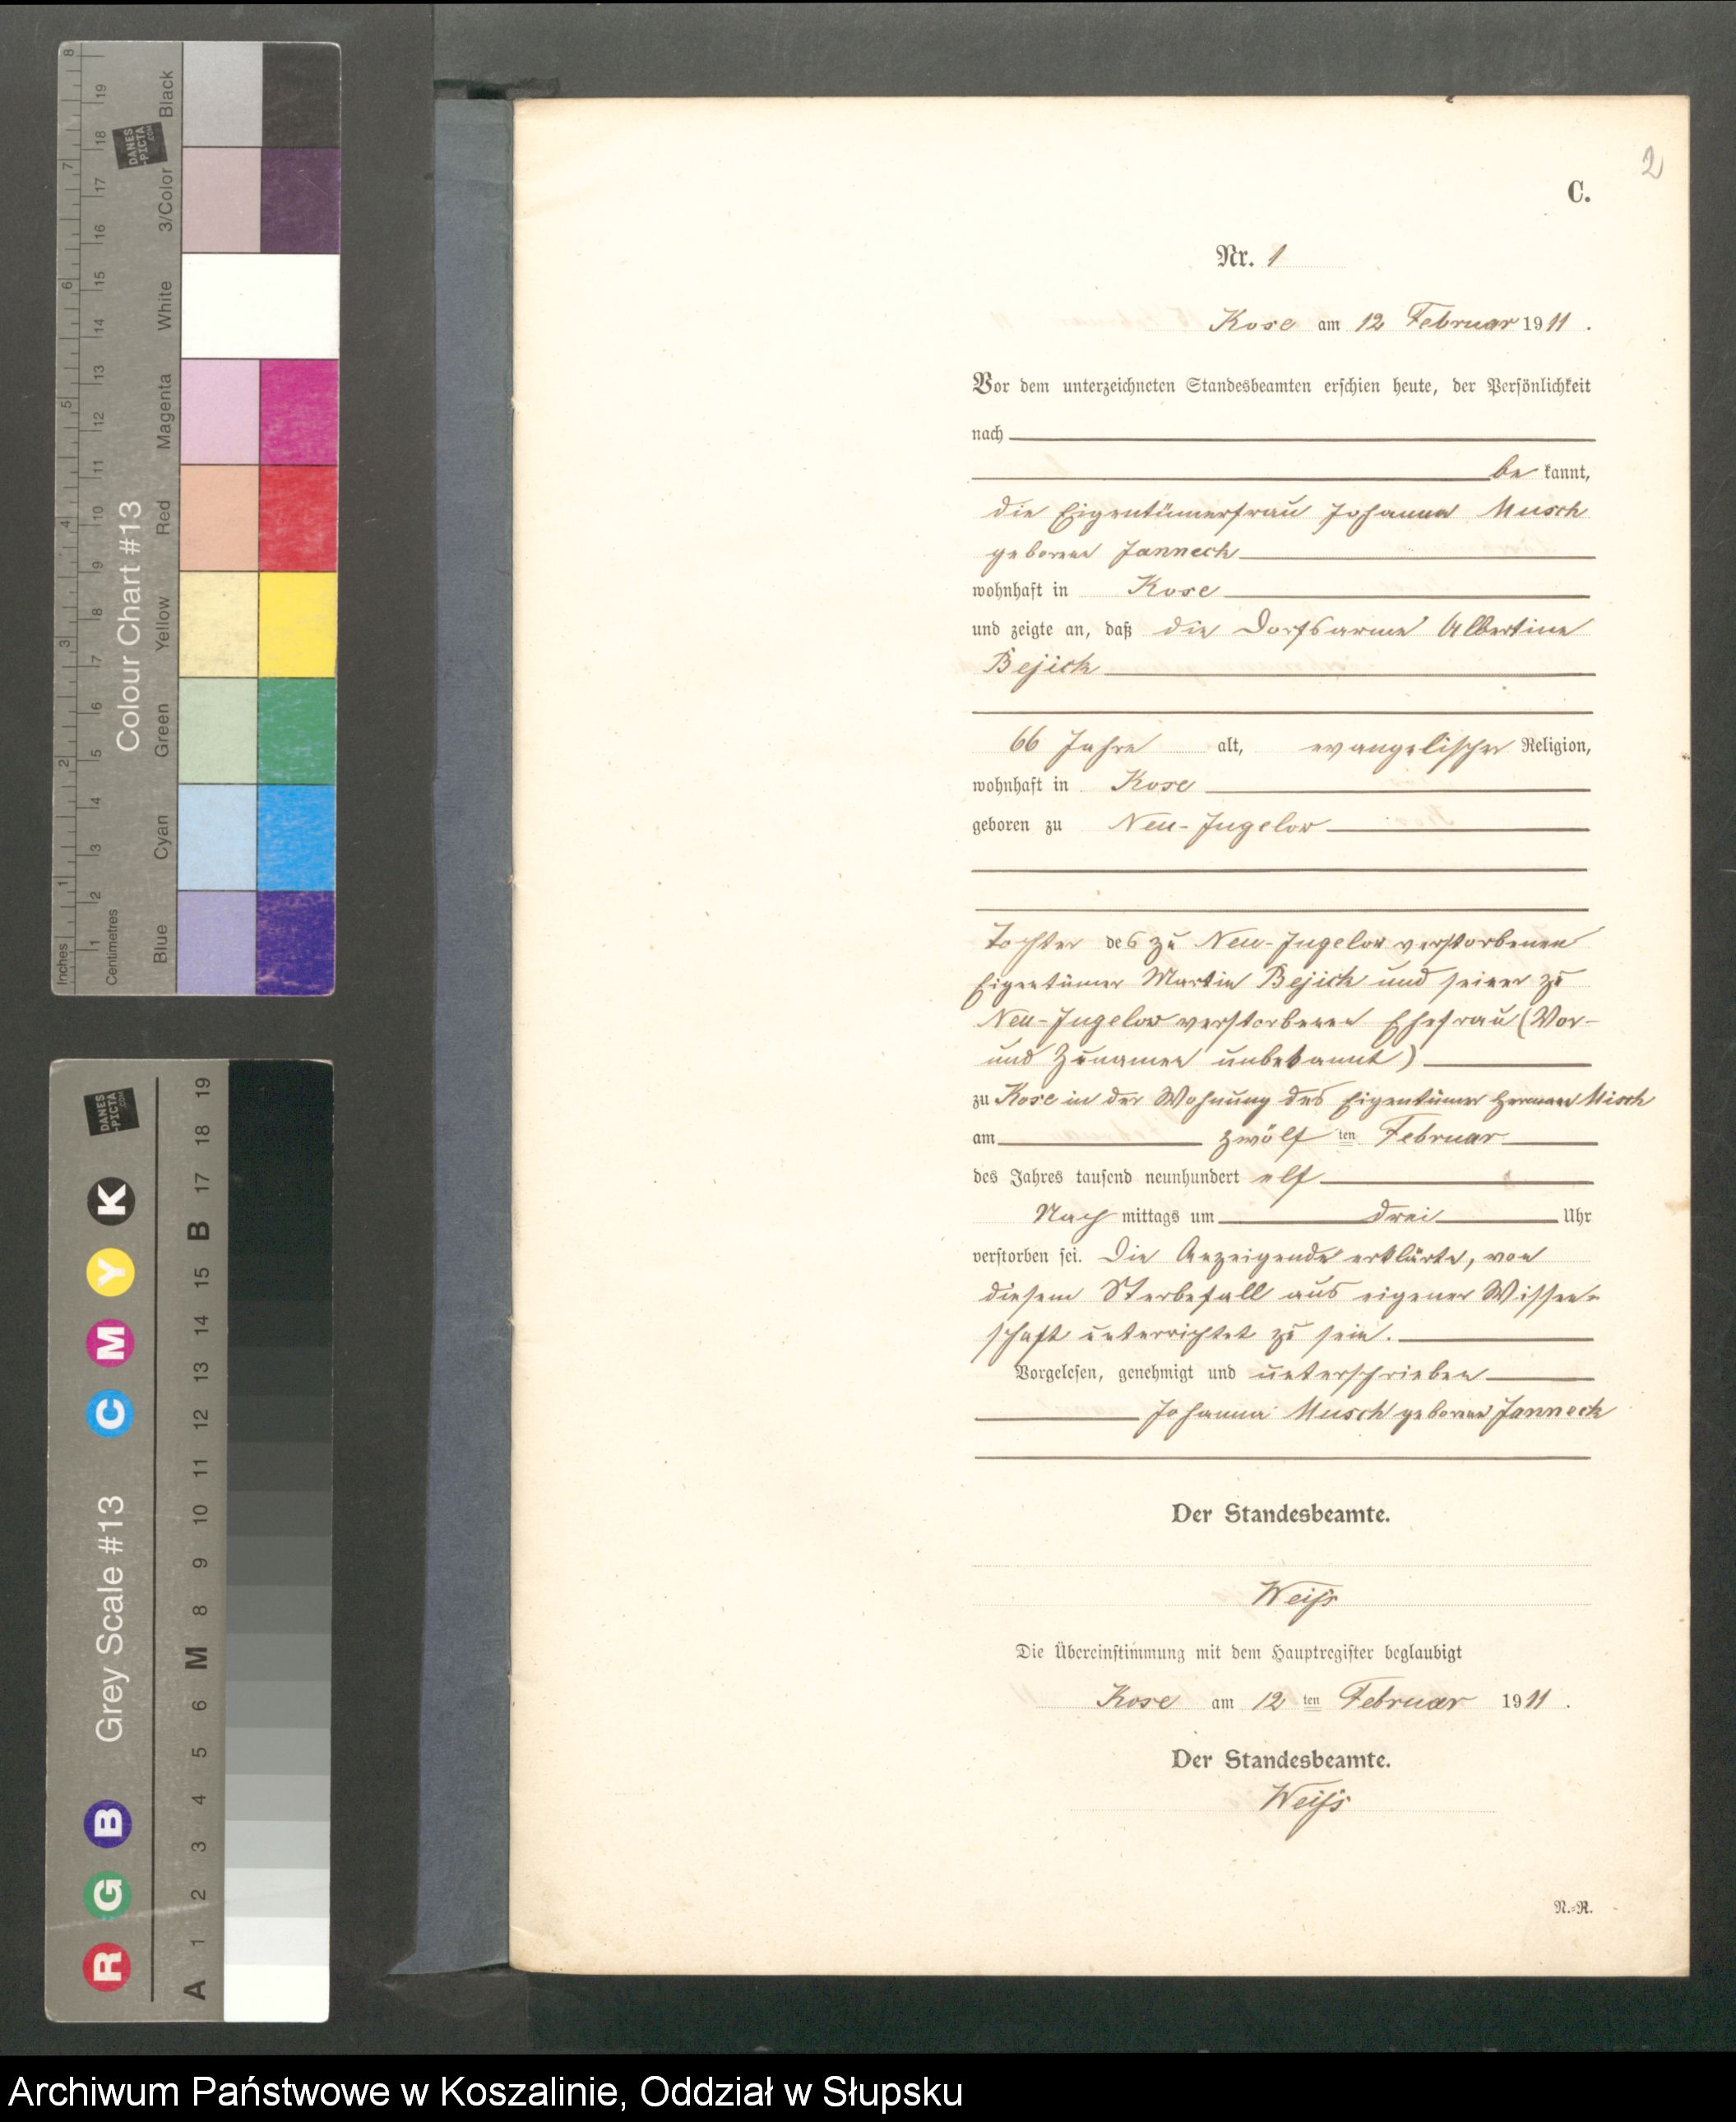 2
C.
Nr. 1
Kose am 12 Februar 1911.
Vor dem unterzeichneten Standesbeamten erschien heute, der Persönlichkeit
nach
be kannt,
die Eigentümerfrau Johanna Musch
geborene Jannech
wohnhaft in Kose
und zeigte an, daß die Dorfsarme Albertine
Bejich
66 Jahre alt, evangelischer Religion,
wohnhaft in Kose
geboren zu Neu-Jugelow
Tochter des zu Neu-Jugelow verstorbenen
Eigentümer Martin Bejich und seiner zu
Neu-Jugelow verstorbenen Ehefrau (Vor-
und Zunamen unbekannt)
zu Kose in der Wohnung des Eigentümer Herman Misch
am zwölf ten Februar
des Jahres tausend neunhundert elf
Nach mittags um drei Uhr
verstorben sei. Die Anzeigende erklärte, von
diesem Sterbefall aus eigener Wissen-
schaft unterrichtet zu sein.
Vorgelesen, genehmigt und unterschrieben
Johanna Musch geborene Jannech
Der Standesbeamte.
Weiß
Die Übereinstimmung mit dem Hauptregister beglaubigt
Kose am 12 ten Februar 1911.
Der Standesbeamte.
Weiß
N.-R.
Colour Chart #13
Inches
Centimetres
Blue Cyan Green Yellow Red Magenta White 3/Color Black
1 2 3 4 5 6 7 8
1 2 3 4 5 6 7 8 9 10 11 12 13 14 15 16 17 18 19
DANES
-PICTA
.COM
Grey Scale #13
R G B C M Y K
A 1 2 3 4 5 6 M 8 9 10 11 12 13 14 15 B 17 18 19
DANES
-PICTA
.COM
Archiwum Państwowe w Koszalinie, Oddział w Słupsku